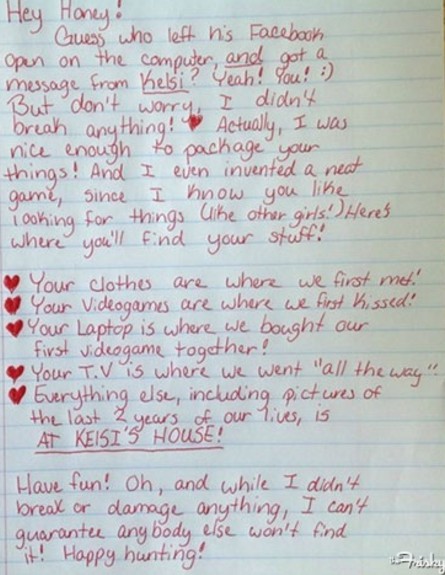 Hey Honey!
Guess who left his Facebook
open on the computer, and got a
message from Kelsi? Yeah! You! :)
But don't worry, I didn't
break anything! ♥ Actually, I was
nice enough to package your
things! And I even invented a neat
game, since I know you like
looking for things (like other girls!) Here's
where you'll find your stuff!
♥ Your clothes are where we first met!
♥ Your Videogames are where we first kissed!
♥ Your Laptop is where we bought our
first videogame together!
♥ Your T.V is where we went "all the way"!
♥ Everything else, including pictures of
the last 2 years of our lives, is
AT KELSI'S HOUSE!
Have fun! Oh, and while I didn't
break or damage anything, I can't
guarantee anybody else won't find
it! Happy hunting!
the Frisky